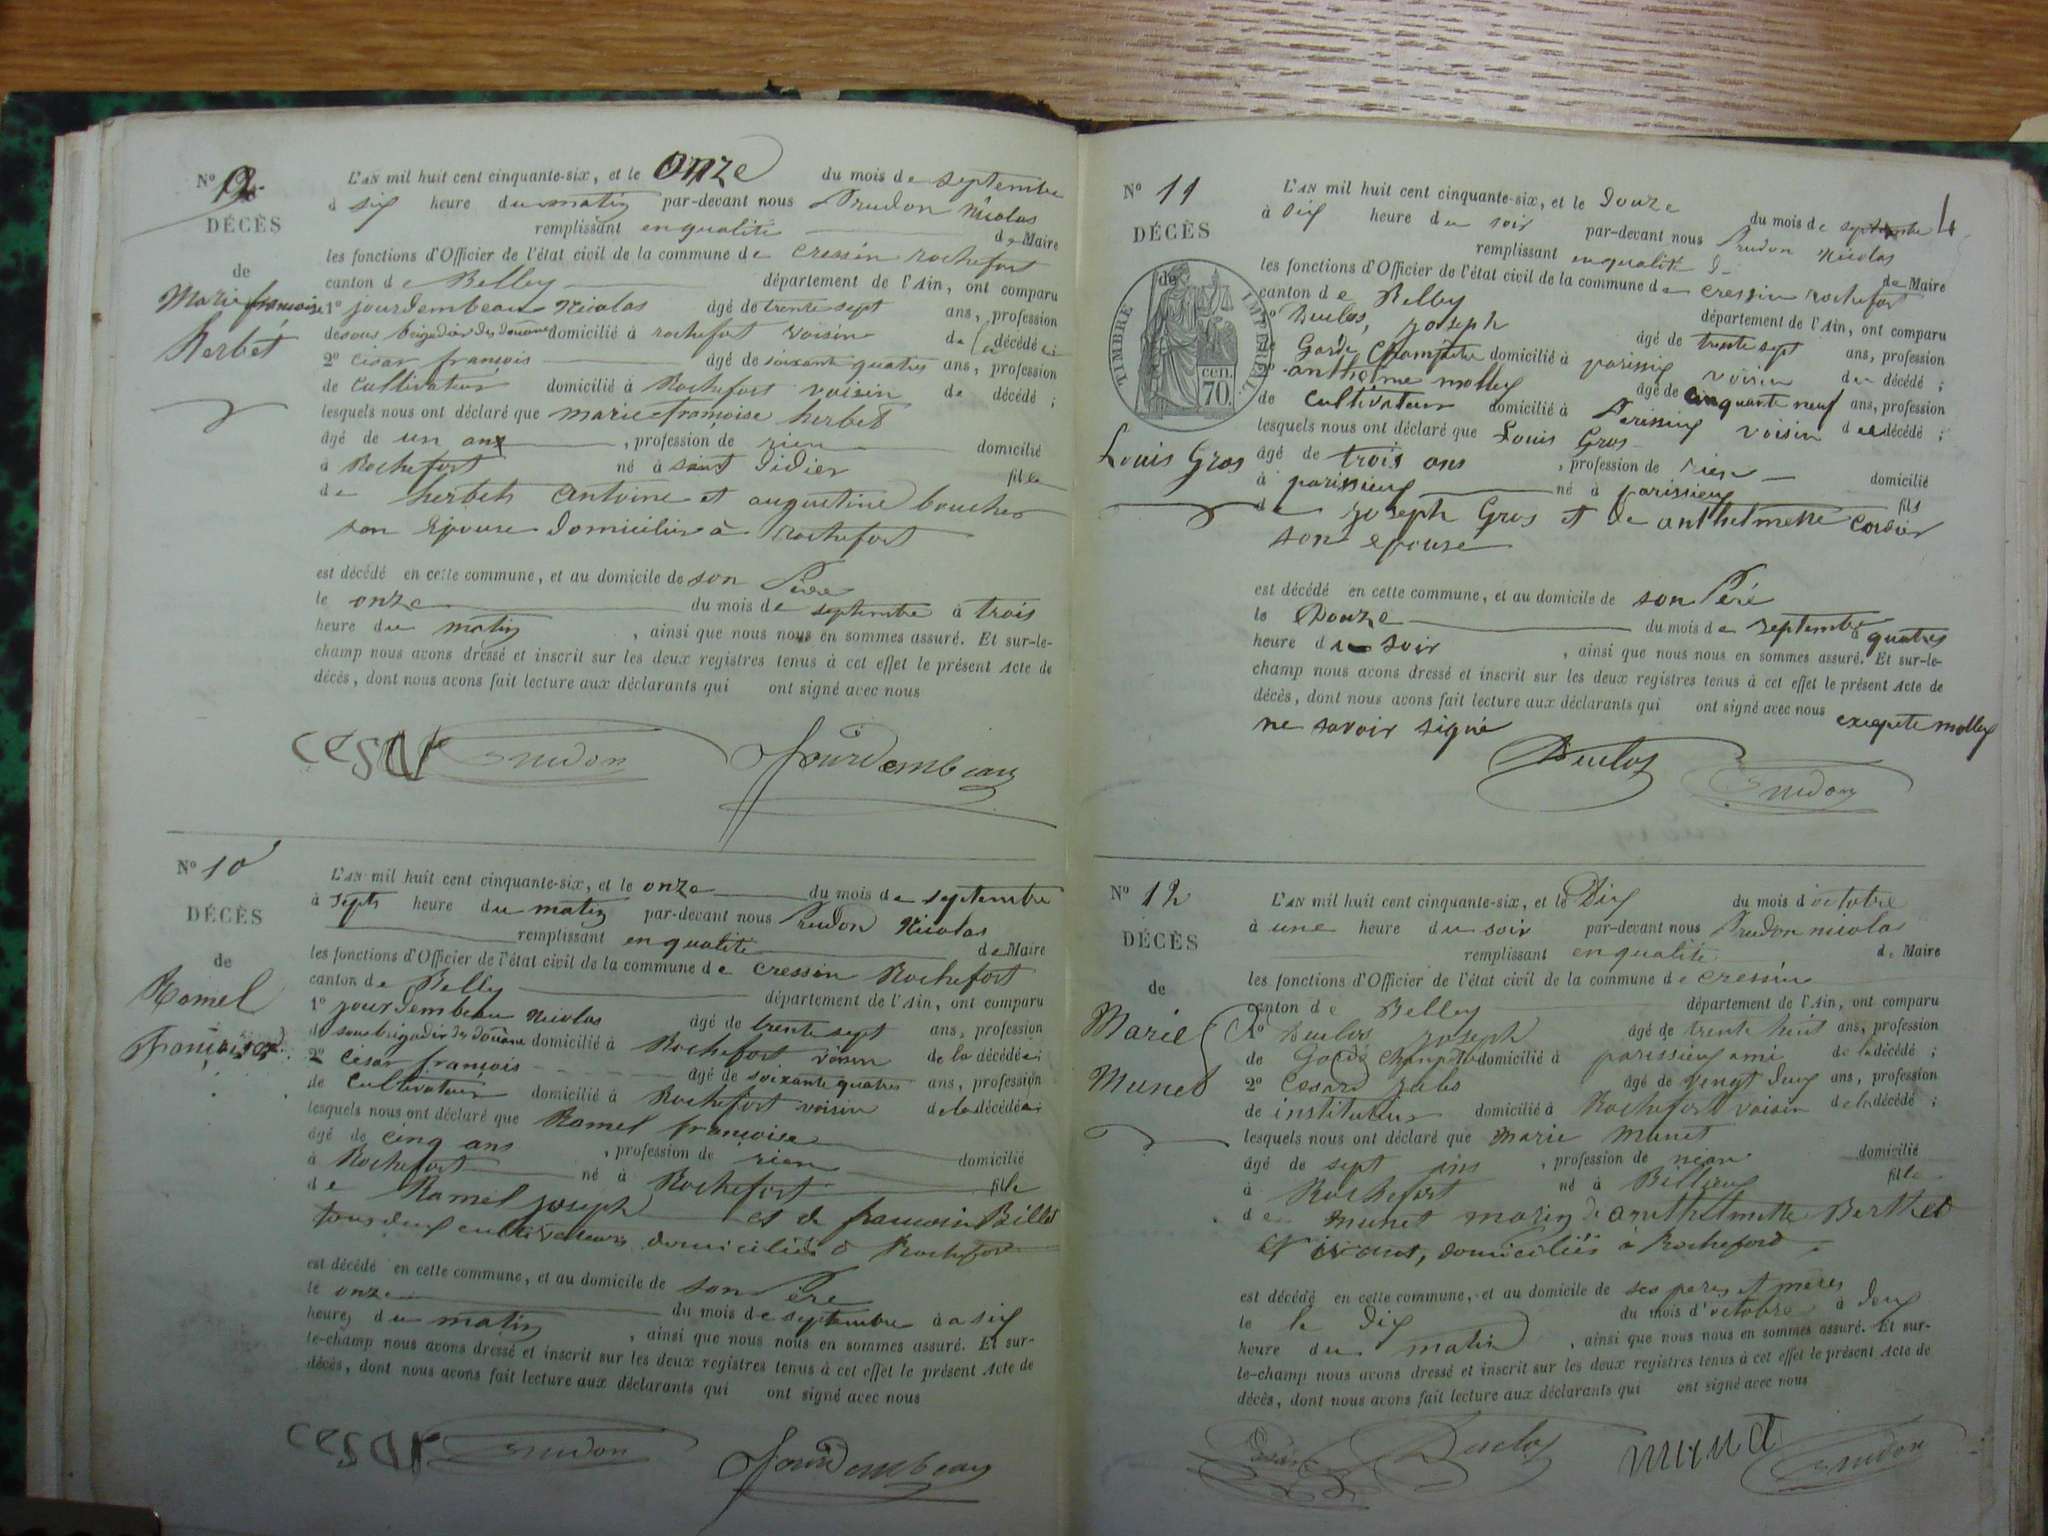 N° 9
DÉCÈS
de
Marie françoise
herbet
L'AN mil huit cent cinquante-six, et le onze du mois de septembre
à six heure du matin par-devant nous Prudon Nicolas
remplissant en qualité de Maire
les fonctions d'Officier de l'état civil de la commune de cressin rochefort
canton de Belley département de l'Ain, ont comparu
1° jourdembeau Nicolas âgé de trente sept ans, profession
de sous brigadier des douane domicilié à rochefort voisin de la décédé
2° César françois âgé de soixante quatres ans, profession
de cultivateur domicilié à Rochefort voisin de décédé ;
lesquels nous ont déclaré que marie françoise herbet
âgé de un ans , profession de rien domicilié
à Rochefort né à saint didier fille
de herbets antoine et augustine boucher
son Epouse domicilies à rochefort
est décédé en cette commune, et au domicile de son Père
le onze du mois de septembre à trois
heure du matin , ainsi que nous nous en sommes assuré. Et sur-le-
champ nous avons dressé et inscrit sur les deux registres tenus à cet effet le présent Acte de
décès, dont nous avons fait lecture aux déclarants qui ont signé avec nous
cesar Prudon Jourdembeau
N° 10
DÉCÈS
de
Ramel
françoise
L'AN mil huit cent cinquante-six, et le onze du mois de septembre
à septs heure du matin par-devant nous Prudon Nicolas
remplissant en qualité de Maire
les fonctions d'Officier de l'état civil de la commune de cressin Rochefort
canton de Belley département de l'Ain, ont comparu
1° jourdembeau Nicolas âgé de trente sept ans, profession
de sous brigadier des douane domicilié à Rochefort voisin de la décédé
2° César françois âgé de soixante quatres ans, profession
de cultivateur domicilié à Rochefort voisin de la décédé
lesquels nous ont déclaré que Ramel françoise
âgé de cinq ans , profession de rien domicilié
à Rochefort né à Rochefort fille
de Ramel joseph et de francoise Billet
tous deux cultivateurs domiciliés à Rochefort
est décédé en cette commune, et au domicile de son Père
le onze du mois de septembre à a six
heures du matin , ainsi que nous nous en sommes assuré. Et sur-
le-champ nous avons dressé et inscrit sur les deux registres tenus à cet effet le présent Acte de
décès, dont nous avons fait lecture aux déclarants qui ont signé avec nous
cesar Prudon Jourdembeau
4
N° 11
DÉCÈS
de
TIMBRE IMPÉRIAL
70 cen.
Louis Gros
L'AN mil huit cent cinquante-six, et le Douze du mois de septembre
à Six heure du soir par-devant nous Prudon Nicolas
remplissant en qualité d de Maire
les fonctions d'Officier de l'état civil de la commune de cressin rochefort
canton de Belley département de l'Ain, ont comparu
1° Duclos, joseph âgé de trente sept ans, profession
de Garde Champetre domicilié à parissiy voisin du décédé ;
2° anthelme molley âgé de cinquante neuf ans, profession
de cultivateur domicilié à voisin du décédé ;
lesquels nous ont déclaré que Louis Gros
âgé de trois ans , profession de rien domicilié
à parissieux né à parissieux fils
de joseph Gros et de anthelmette cordier
son epouse
est décédé en cette commune, et au domicile de son Péré
le Douze du mois de septembre à quatres
heure du soir , ainsi que nous nous en sommes assuré. Et sur-le-
champ nous avons dressé et inscrit sur les deux registres tenus à cet effet le présent Acte de
décès, dont nous avons fait lecture aux déclarants qui ont signé avec nous exepte molley
ne savoir signé
Duclos Prudon
N° 12
DÉCÈS
de
Marie
Munet
L'AN mil huit cent cinquante-six, et le Dix du mois d'octobre
à une heure du soir par-devant nous Prudon nicolas
remplissant en qualité de Maire
les fonctions d'Officier de l'état civil de la commune de cressin
canton de Belley département de l'Ain, ont comparu
1° Duclos joseph âgé de trente huit ans, profession
de Garde Champetre domicilié à parissieux ami de la décédé ;
2° Cesard jules âgé de vengt deux ans, profession
de instituteur domicilié à Rochefort voisin de la décédé ;
lesquels nous ont déclaré que Marie Munet
âgé de sept ans , profession de néan domicilié
à Rochefort né à Billieux fille
de munet marin de anthelmette Berthet
vivant, domiciliés à Rocheford
est décédé en cette commune, et au domicile de ses peres et meres
le le dix du mois d'octobre à deux
heure du matin , ainsi que nous nous en sommes assuré. Et sur-
le-champ nous avons dressé et inscrit sur les deux registres tenus à cet effet le présent Acte de
décès, dont nous avons fait lecture aux déclarants qui ont signé avec nous
Duclos munet Prudon